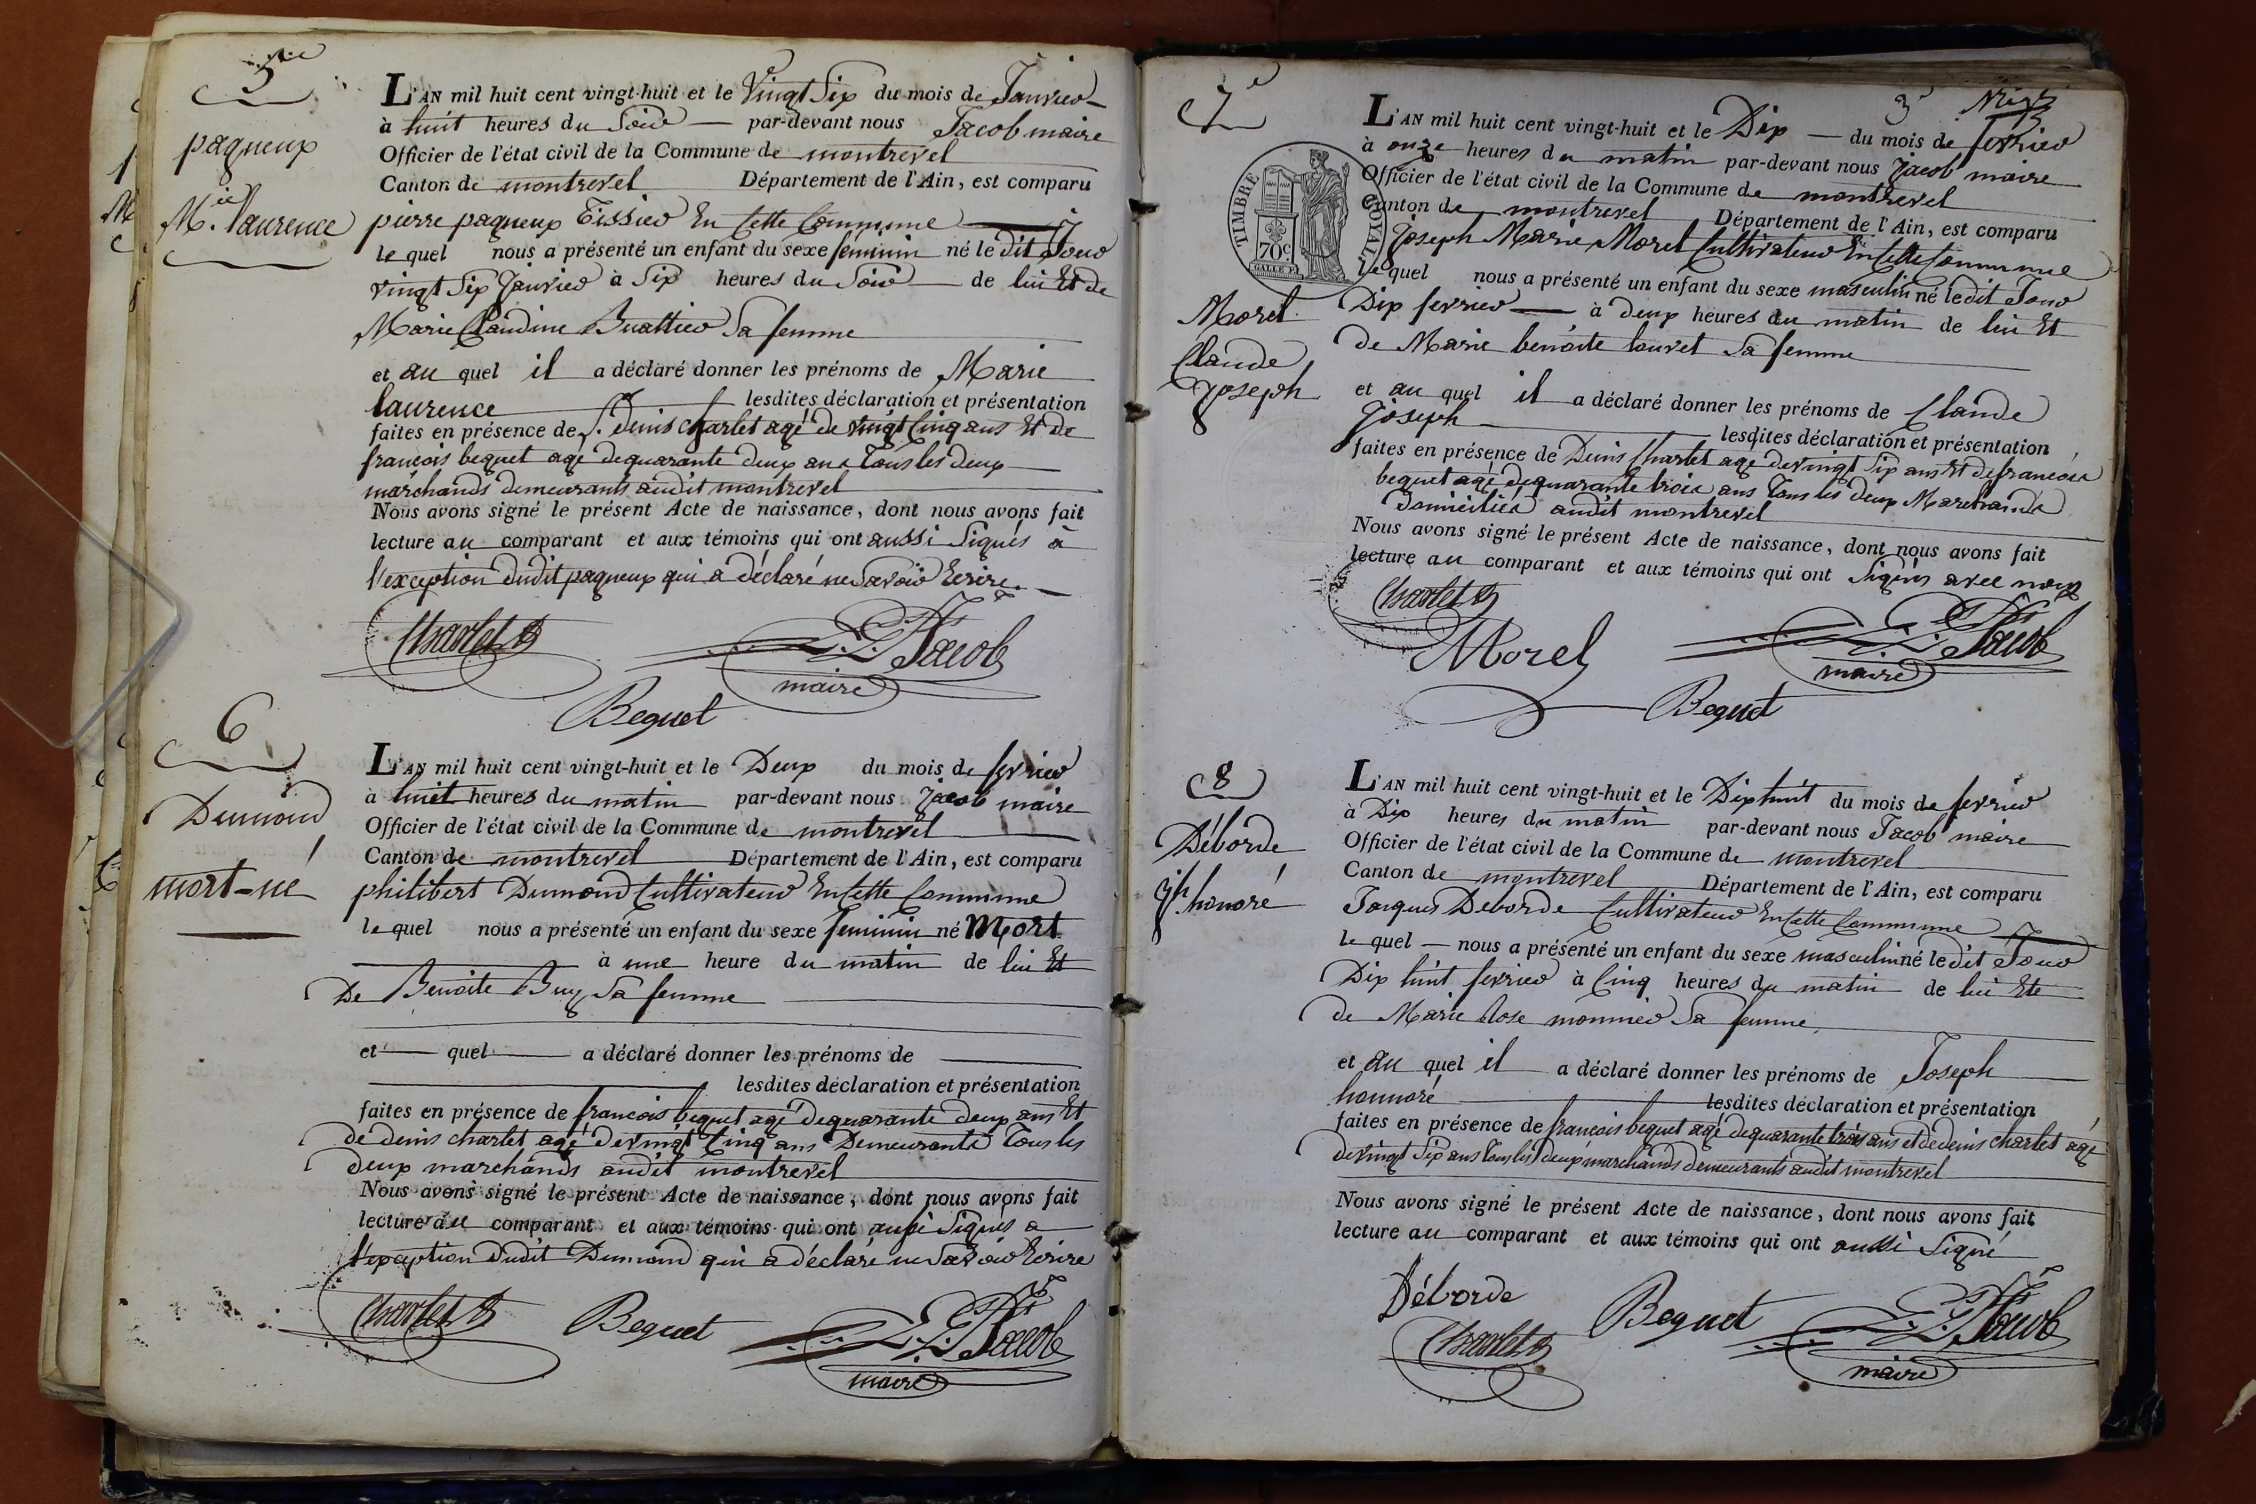 5me
paqueux
M.ie Laurence
L'AN mil huit cent vingt-huit et le Vingt Six du mois de Janvier
à huit heures du Soir par-devant nous Jacob maire
Officier de l'état civil de la Commune de montrevel
Canton de montrevel Département de l'Ain, est comparu
pierre paqueux Tissier En Cette Commune
le quel nous a présenté un enfant du sexe feminin né le dit Jour
vingt Six Janvier à Six heures du Soir de lui Et de
Marie Claudine Buattier Sa femme
et au quel il a déclaré donner les prénoms de Marie
laurence lesdites déclaration et présentation
faites en présence de S. Denis Charlet agé de vingt Cinq ans Et de
francois bequet agé de quarante deux ans Tous les deux
marchands demeurants audit montrevel
Nous avons signé le présent Acte de naissance, dont nous avons fait
lecture au comparant et aux témoins qui ont aussi Signés à
l'exception dudit paqueux qui a déclaré ne Savoir Ecrire.
Charlet D
Jacob
maire
Bequet
6
Dumond
mort-né
L'AN mil huit cent vingt-huit et le Deux du mois de fevrier
à huit heures du matin par-devant nous Jacob maire
Officier de l'état civil de la Commune de montrevel
Canton de montrevel Département de l'Ain, est comparu
philibert Dumond Cultivateur En Cette Commune
le quel nous a présenté un enfant du sexe feminin né Mort
à une heure du matin de lui Et
De Benoite Buy Sa femme
et quel a déclaré donner les prénoms de
lesdites déclaration et présentation
faites en présence de francois bequet agé De quarante deux ans Et
de denis charlet agé De vingt Cinq ans Demeurants Tous les
deux marchands audit montrevel
Nous avons signé le présent Acte de naissance, dont nous avons fait
lecture au comparant et aux témoins qui ont aussi Signés a
l'exception Dudit Dumond qui a déclaré ne Savoir Ecrire
Charlet D
Bequet
Jacob
maire
7e
3e
TIMBRE ROYAL
70c
Morel
Claude
Joseph
L'AN mil huit cent vingt-huit et le Dix du mois de fevrier
à onze heures du matin par-devant nous Jacob maire
Officier de l'état civil de la Commune de montrevel
Canton de montrevel Département de l'Ain, est comparu
Joseph Marie Morel Cultivateur En Cette Commune
le quel nous a présenté un enfant du sexe masculin né le dit Jour
Dix fevrier à deux heures du matin de lui Et
de Marie benoite louvet Sa femme
et au quel il a déclaré donner les prénoms de Claude
Joseph lesdites déclaration et présentation
faites en présence de Denis Charlet agé de vingt Six ans Et de francois
bequet agé de quarante trois ans Tous les deux Marchands
Domiciliés audit montrevel
Nous avons signé le présent Acte de naissance, dont nous avons fait
lecture au comparant et aux témoins qui ont Signés avec nous
Charlet D
Morel
Jacob
maire
Bequet
8
Déborde
jph honoré
L'AN mil huit cent vingt-huit et le Dix huit du mois de fevrier
à Dix heures du matin par-devant nous Jacob maire
Officier de l'état civil de la Commune de montrevel
Canton de montrevel Département de l'Ain, est comparu
Jacques Deborde Cultivateur En Cette Commune
le quel nous a présenté un enfant du sexe masculin né le dit Jour
Dix huit fevrier à Cinq heures du matin de lui Et
de Marie Rose monnier Sa femme
et au quel il a déclaré donner les prénoms de Joseph
honnoré lesdites déclaration et présentation
faites en présence de francois bequet agé de quarante trois ans et de denis charlet agé
de vingt Six ans Tous les deux marchands demeurants audit montrevel
Nous avons signé le présent Acte de naissance, dont nous avons fait
lecture au comparant et aux témoins qui ont aussi Signé
Déborde
Charlet D
Bequet
Jacob
maire